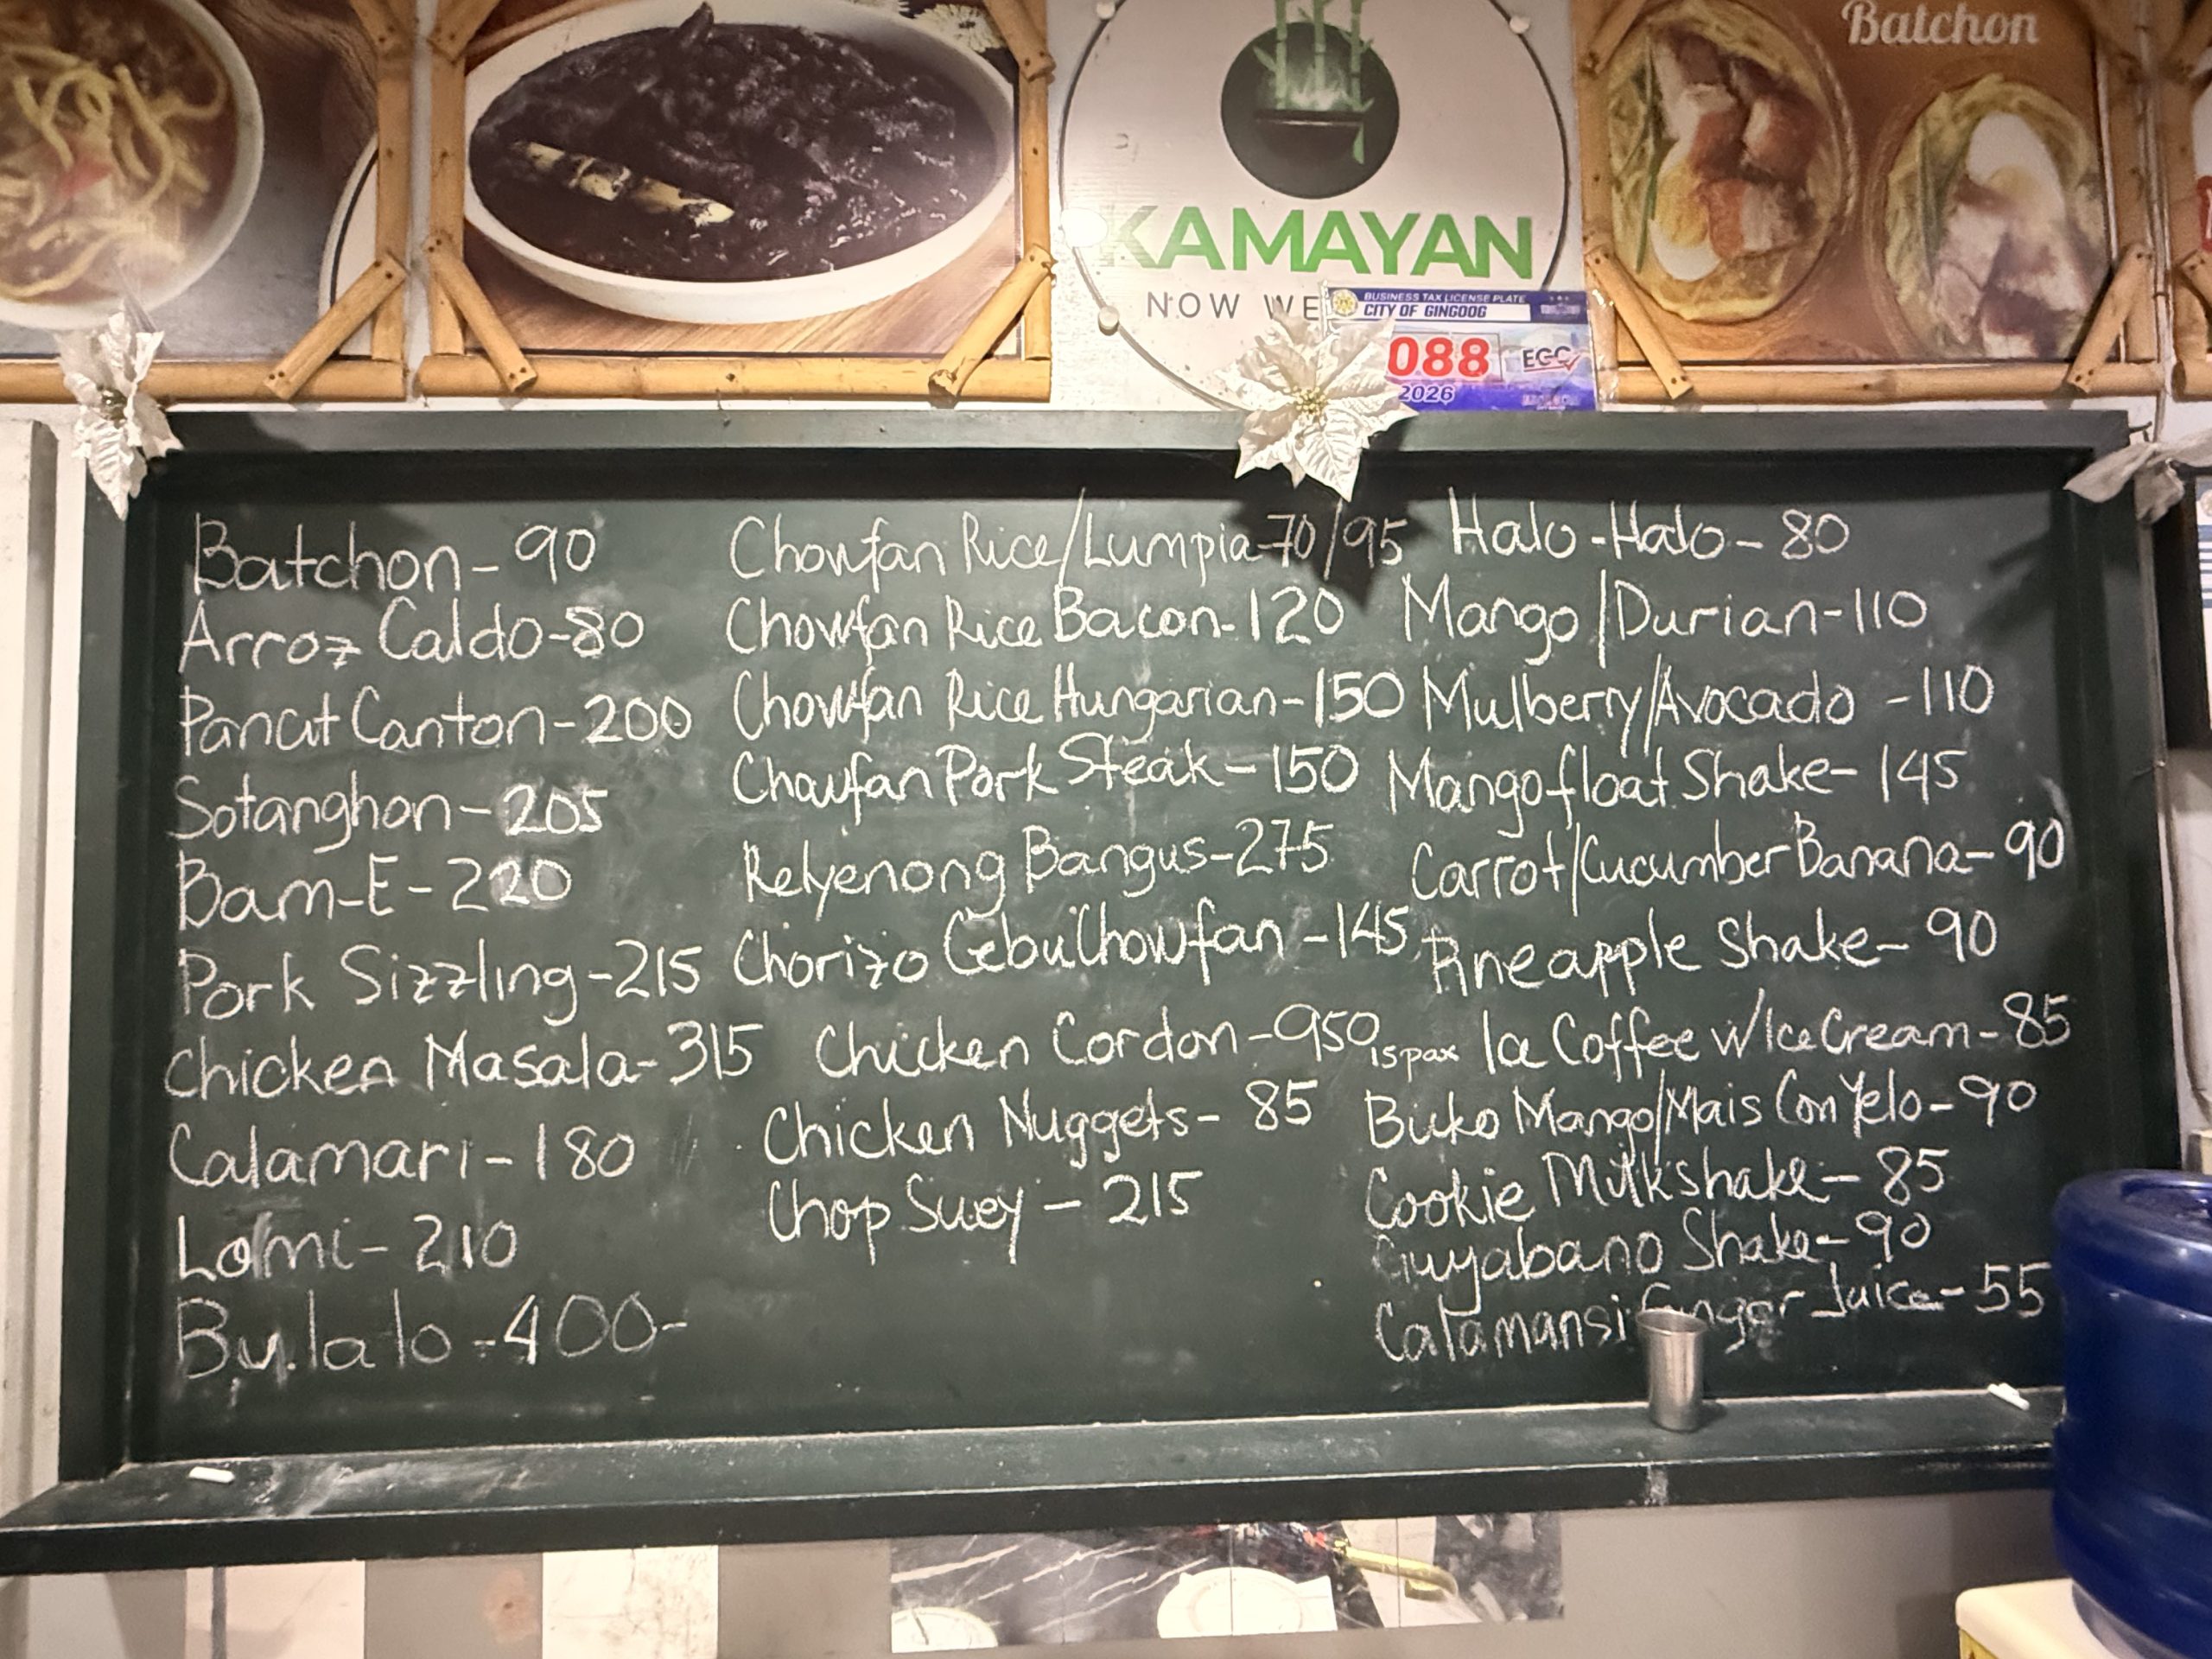 Batchon
KAMAYAN
NOW WE
BUSINESS TAX LICENSE PLATE
CITY OF GINGOOG
088
EGC
2026
Batchon - 90
Arroz Caldo - 80
Pancit Canton - 200
Sotanghon - 205
Bam-E - 220
Pork Sizzling - 215
Chicken Masala - 315
Calamari - 180
Lomi - 210
Bulalo - 400-
Chowfan Rice/Lumpia - 70/95
Chowfan Rice Bacon - 120
Chowfan Rice Hungarian - 150
Chowfan Pork Steak - 150
Relyenong Bangus - 275
Chorizo Cebu Chowfan - 145
Chicken Cordon - 950 15pax
Chicken Nuggets - 85
Chop Suey - 215
Halo-Halo - 80
Mango/Durian - 110
Mulberry/Avocado - 110
Mangofloat Shake - 145
Carrot/Cucumber Banana - 90
Pineapple Shake - 90
Ice Coffee w/Ice Cream - 85
Buko Mango/Mais Con Yelo - 90
Cookie Milkshake - 85
Guyabano Shake - 90
Calamansi Ginger Juice - 55